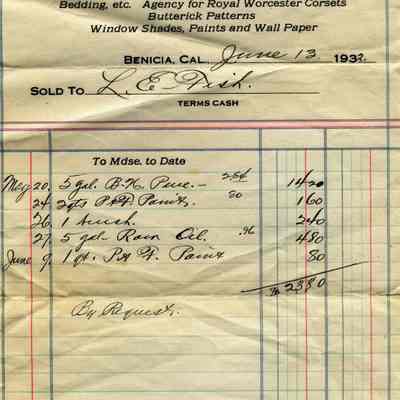 Bedding, etc. Agency for Royal Worcester Corsets
Butterick Patterns
Window Shades, Paints and Wall Paper
BENICIA, CAL. June 13 193
SOLD TO L. E. Fish.
TERMS CASH
To Mdse. to Date
May 20. 5 gal. B.H. 284 14 20
24 2 qts P&F. Paint. 80 1 60
26. 1 brush. 2 40
27. 5 gal. Oil. .96 4 80
June 9. 1 qt. P & F. Paint 80
23 80
By Request.